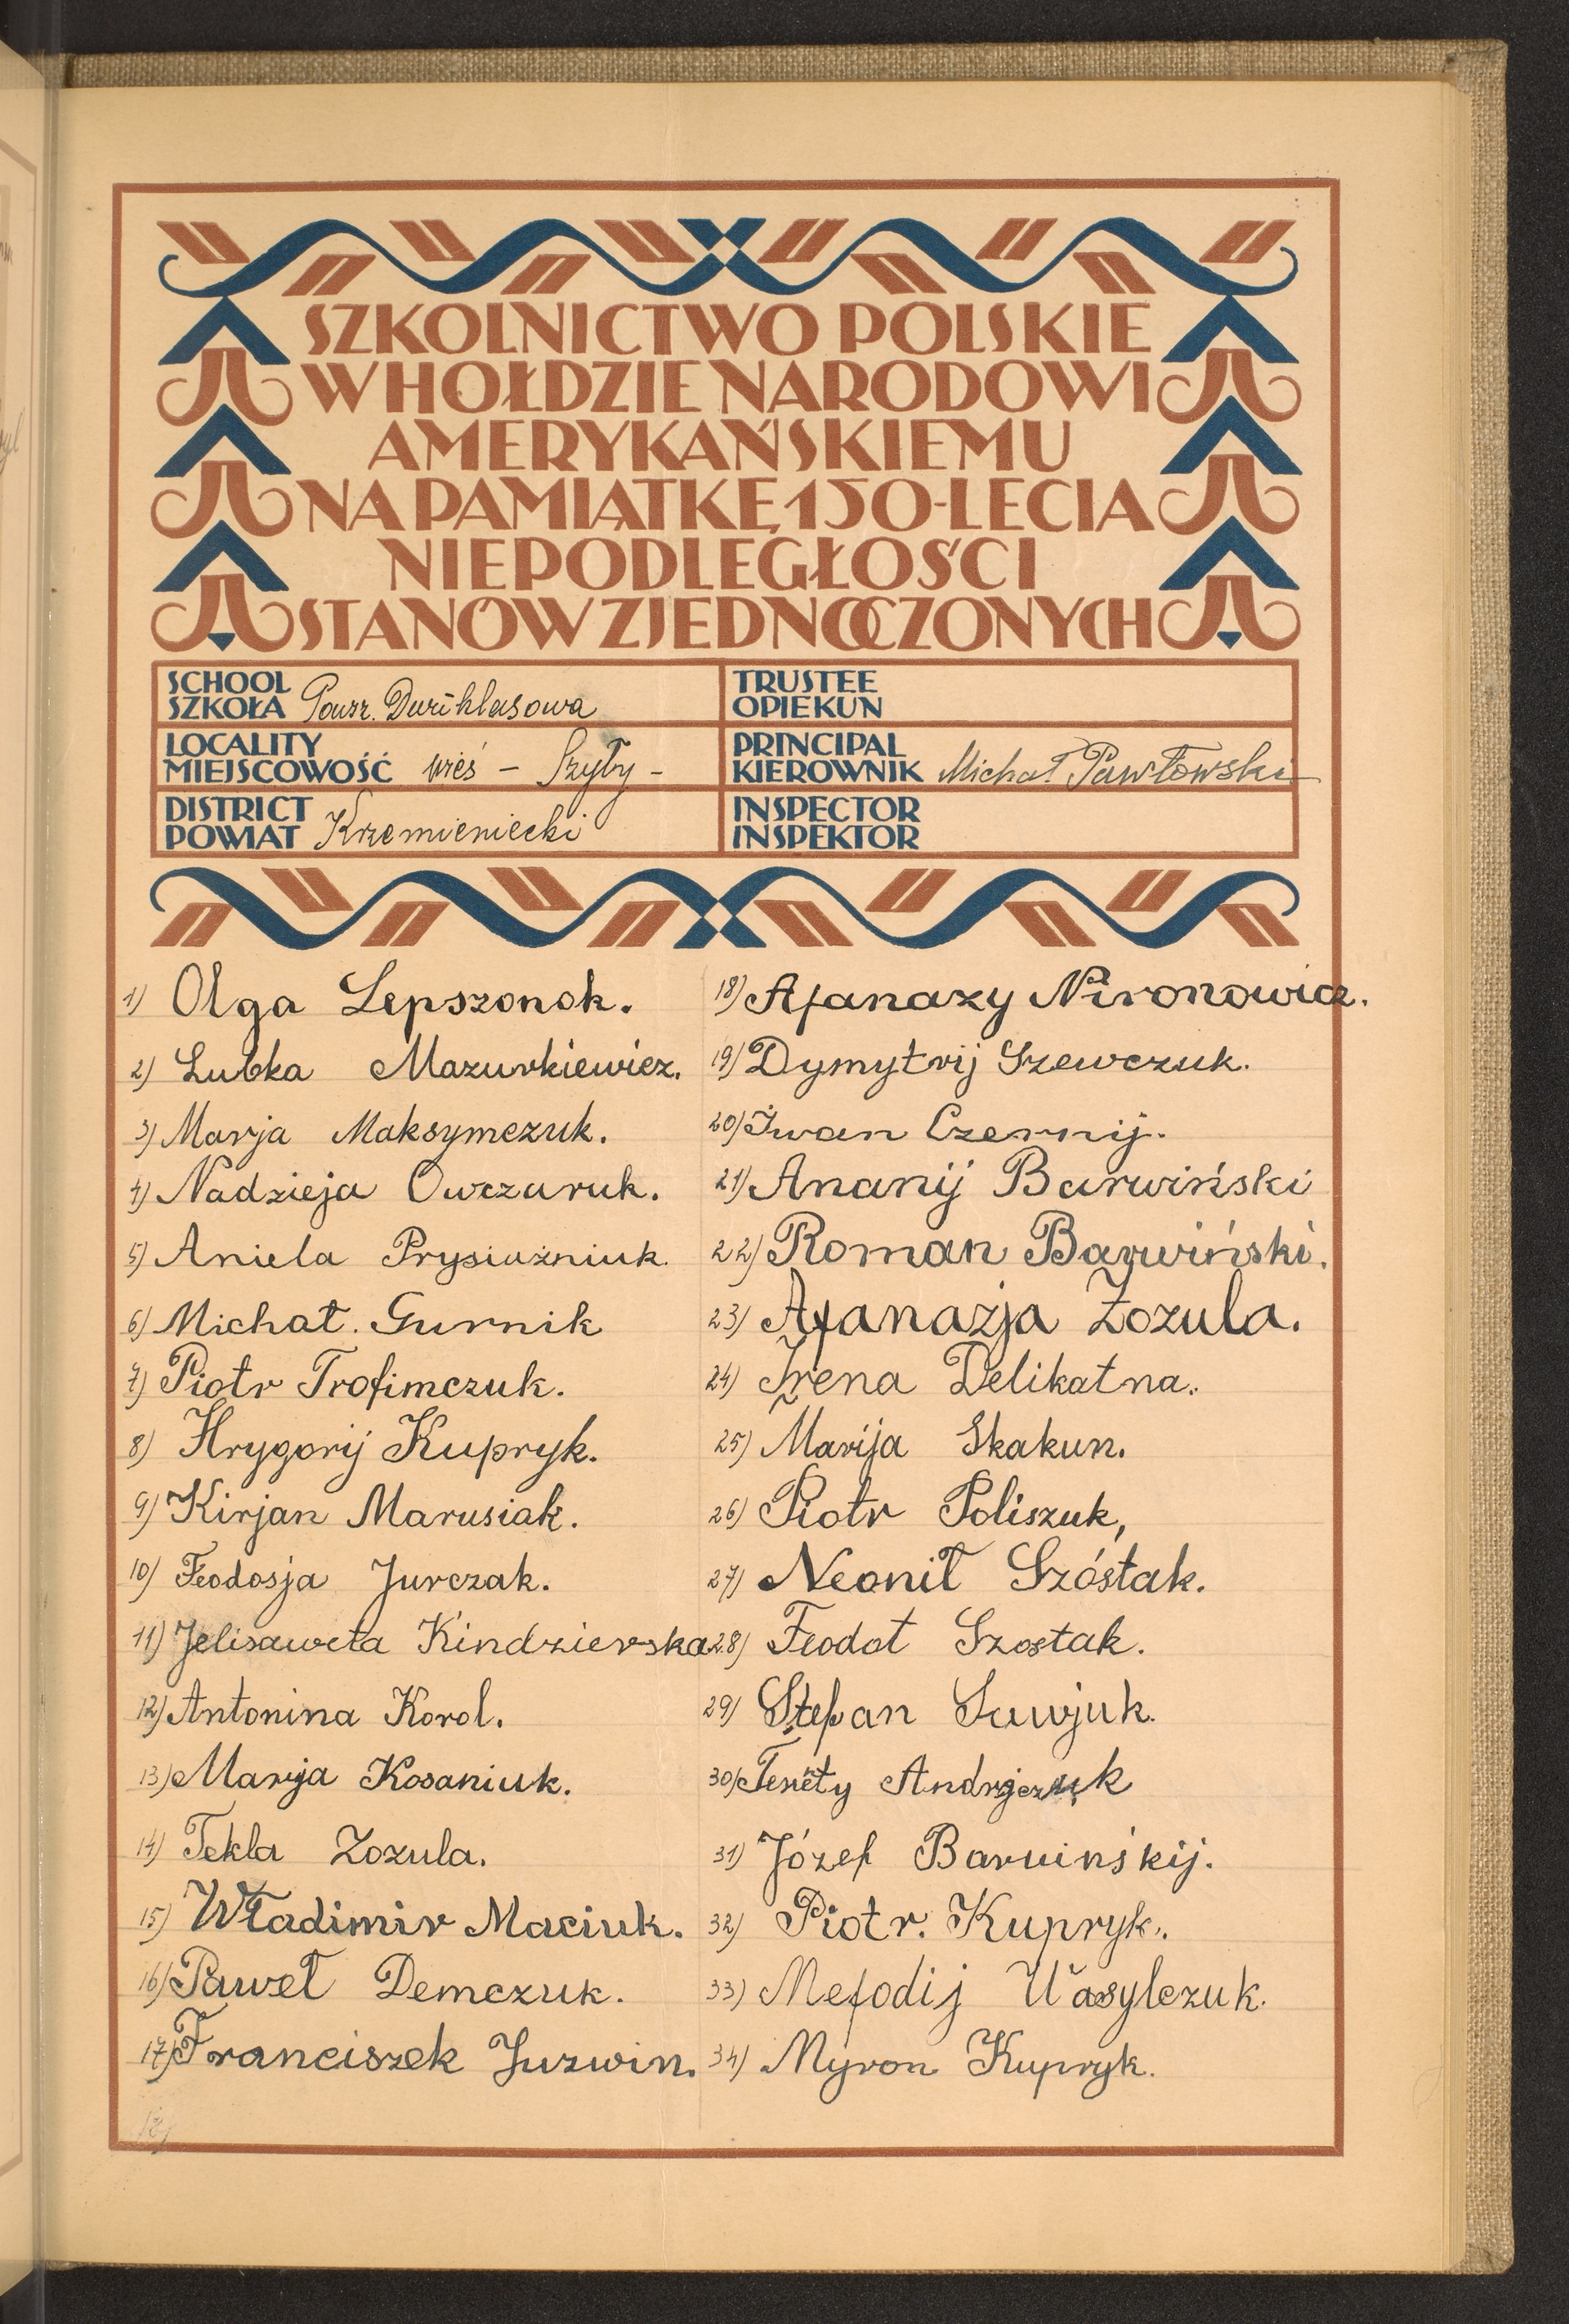 SZKOLNICTWO POLSKIE
W HOŁDZIE NARODOWI
AMERYKAŃSKIEMU
NA PAMIĄTKĘ 150-LECIA
NIEPODLEGŁOŚCI
STANÓW ZJEDNOCZONYCH
SCHOOL
SZKOŁA Powsz. Dwuklasowa
LOCALITY
MIEJSCOWOŚĆ wieś - Szyły -
DISTRICT
POWIAT Krzemieniecki
TRUSTEE
OPIEKUN
PRINCIPAL
KIEROWNIK Michał Pawłowski
INSPECTOR
INSPEKTOR
1) Olga Lepszonok.
2) Lubka Mazurkiewicz.
3) Marja Maksymczuk.
4) Nadzieja Owczaruk.
5) Aniela Prysiażniuk.
6) Michał. Gurnik
7) Piotr Trofimczuk.
8) Hrygorij Kupryk.
9) Kirjan Marusiak.
10) Feodosja Jurczak.
11) Jelisaweta Kindzierska
12) Antonina Korol.
13) Marija Kosaniuk.
14) Tekla Zozula.
15) Władimir Maciuk.
16) Paweł Demczuk.
17) Franciszek Juzwin.
18)
18) Afanazy Nironowicz.
19) Dymytrij Szewczuk.
20) Iwan Czernij.
21) Ananij Barwiński
22) Roman Barwiński.
23) Afanazja Zozula.
24) Irena Delikatna.
25) Marija Skakun.
26) Piotr Poliszuk,
27) Neonił Szóstak.
28) Feodot Szostak.
29) Stefan Sawjuk.
30) Andrijczuk
31) Józef Barwińskij.
32) Piotr. Kupryk.
33) Mefodij Wasylczuk.
34) Myron Kupryk.